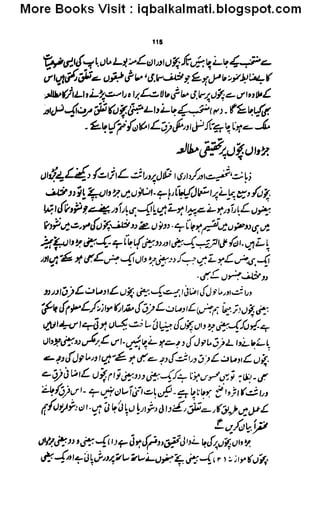 More Books Visit : iqbalkalmati.blogspot.com
115
سے منتخب کیے جانے چاہئیں تاکہ بچوں اور ان کے منہ بولے ماں باپ کی ایسی خصوصیات
کا باضابطہ نمونہ حاصل ہو سکے جو مختلف سماجی، معاشی طبقوں سے تعلق رکھتی ہیں اس
کے علاوہ اس سے بچوں پر سماجی معاشی حالات کے براہ راست پڑنے والے اثر کا مطالعہ
بھی کیا جا سکے گا۔ دوم انتخاب کیے جانے والے متبنٰی بچوں کا تعلق صرف ایک نسل اور
ملک سے ہونا چاہیے تاکہ نسلی اور ملکی فرق کے امکان کو ختم کیا جا سکے۔
جڑواں بچوں پر تحقیقی مطالعہ
ذہانت، شخصیت اور کرداری اختلال پر وراثت کے اثرات کو دیکھنے کے لیے جڑواں
بچوں کو وسیع پیمانے پر استعمال کیا جاتا رہا ہے۔ انسانوں میں جڑواں بچے یا تو دو مختلف
بیضوں کے بارآور ہونے سے پیدا ہوتے ہیں یا ایک ہی بارآور بیضے سے جو نشوونما کی ابتدا
میں ہی دو حصوں میں تقسیم ہو جاتا ہے۔ دونوں حصے دو مختلف بچوں کی صورت میں نشوونما
پاتے ہیں۔ ان کو علی الترتیب یک بیضی اور دو بیضی کہا جاتا ہے یک بیضی جڑواں بچے ہمیشہ
ایک ہی جنس کے ہوتے ہیں جب کہ دو بیضی جڑواں ایک جنس کے بھی ہو سکتے ہیں اور
دو مختلف جنسوں کے بھی۔
وراثت اور ماحول کی اضافی اہمیت یک بیضی بچوں کے اوصاف کے فرق اور دو
بیضی بچوں (ہم جنس) کے اوصاف کے فرق کی مقدار کا موازنہ کر کے معلوم کی جا سکتی
ہے کیونکہ یک بیضی جڑواں بچوں کی جینیاتی ساخت یکساں ہوتی ہے اس لیے ان میں
پائے جانے والے فرق ماحول کی وجہ سے ہونے چاہئیں۔ اس کے برعکس دو بیضی جڑواں
بچوں کے اوصاف کے فرق وراثت کی وجہ سے بھی ہو سکتے ہیں اور ماحول کی وجہ سے
بھی۔ بظاہر تو یہی محسوس ہوتا ہے کہ یک بیضی و دو بیضی توام بچوں کے اضافی فرق سے
وراثت کا اثر واضح ہو جانا چاہیے۔ لیکن بات اتنی آسان نہیں ہے۔ اس فرق کو جانچنے
کے عمل میں طریق کار سے تعلق رکھنے والی دشواریاں پائی جاتی ہیں۔ ان دشواریوں کو ہم
مختصراً بیان کریں گے
جڑواں بچوں پر کی جانے والی تحقیق دو قسم کی ہوتی ہے (۱) یک بیضی و دو بیضی جڑواں
بچوں کا موازنہ (۲) یک بیضی بچے جنہوں نے ساتھ ساتھ پرورش پائی ہے اور یک بیضی